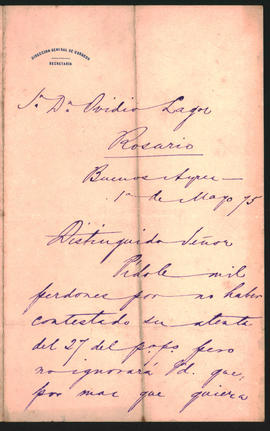 DIRECCION GENERAL DE CORREOS
SECRETARÍA
Sr. Dn. Ovidio Lagos
Rosario
Buenos Ayres
1º de Mayo 75
Distinguido Señor
Pidole mil
perdones por no haber
contestado su atenta
del 27 del ppo. pero
no ignorará Vd. que,
por mas que quiera